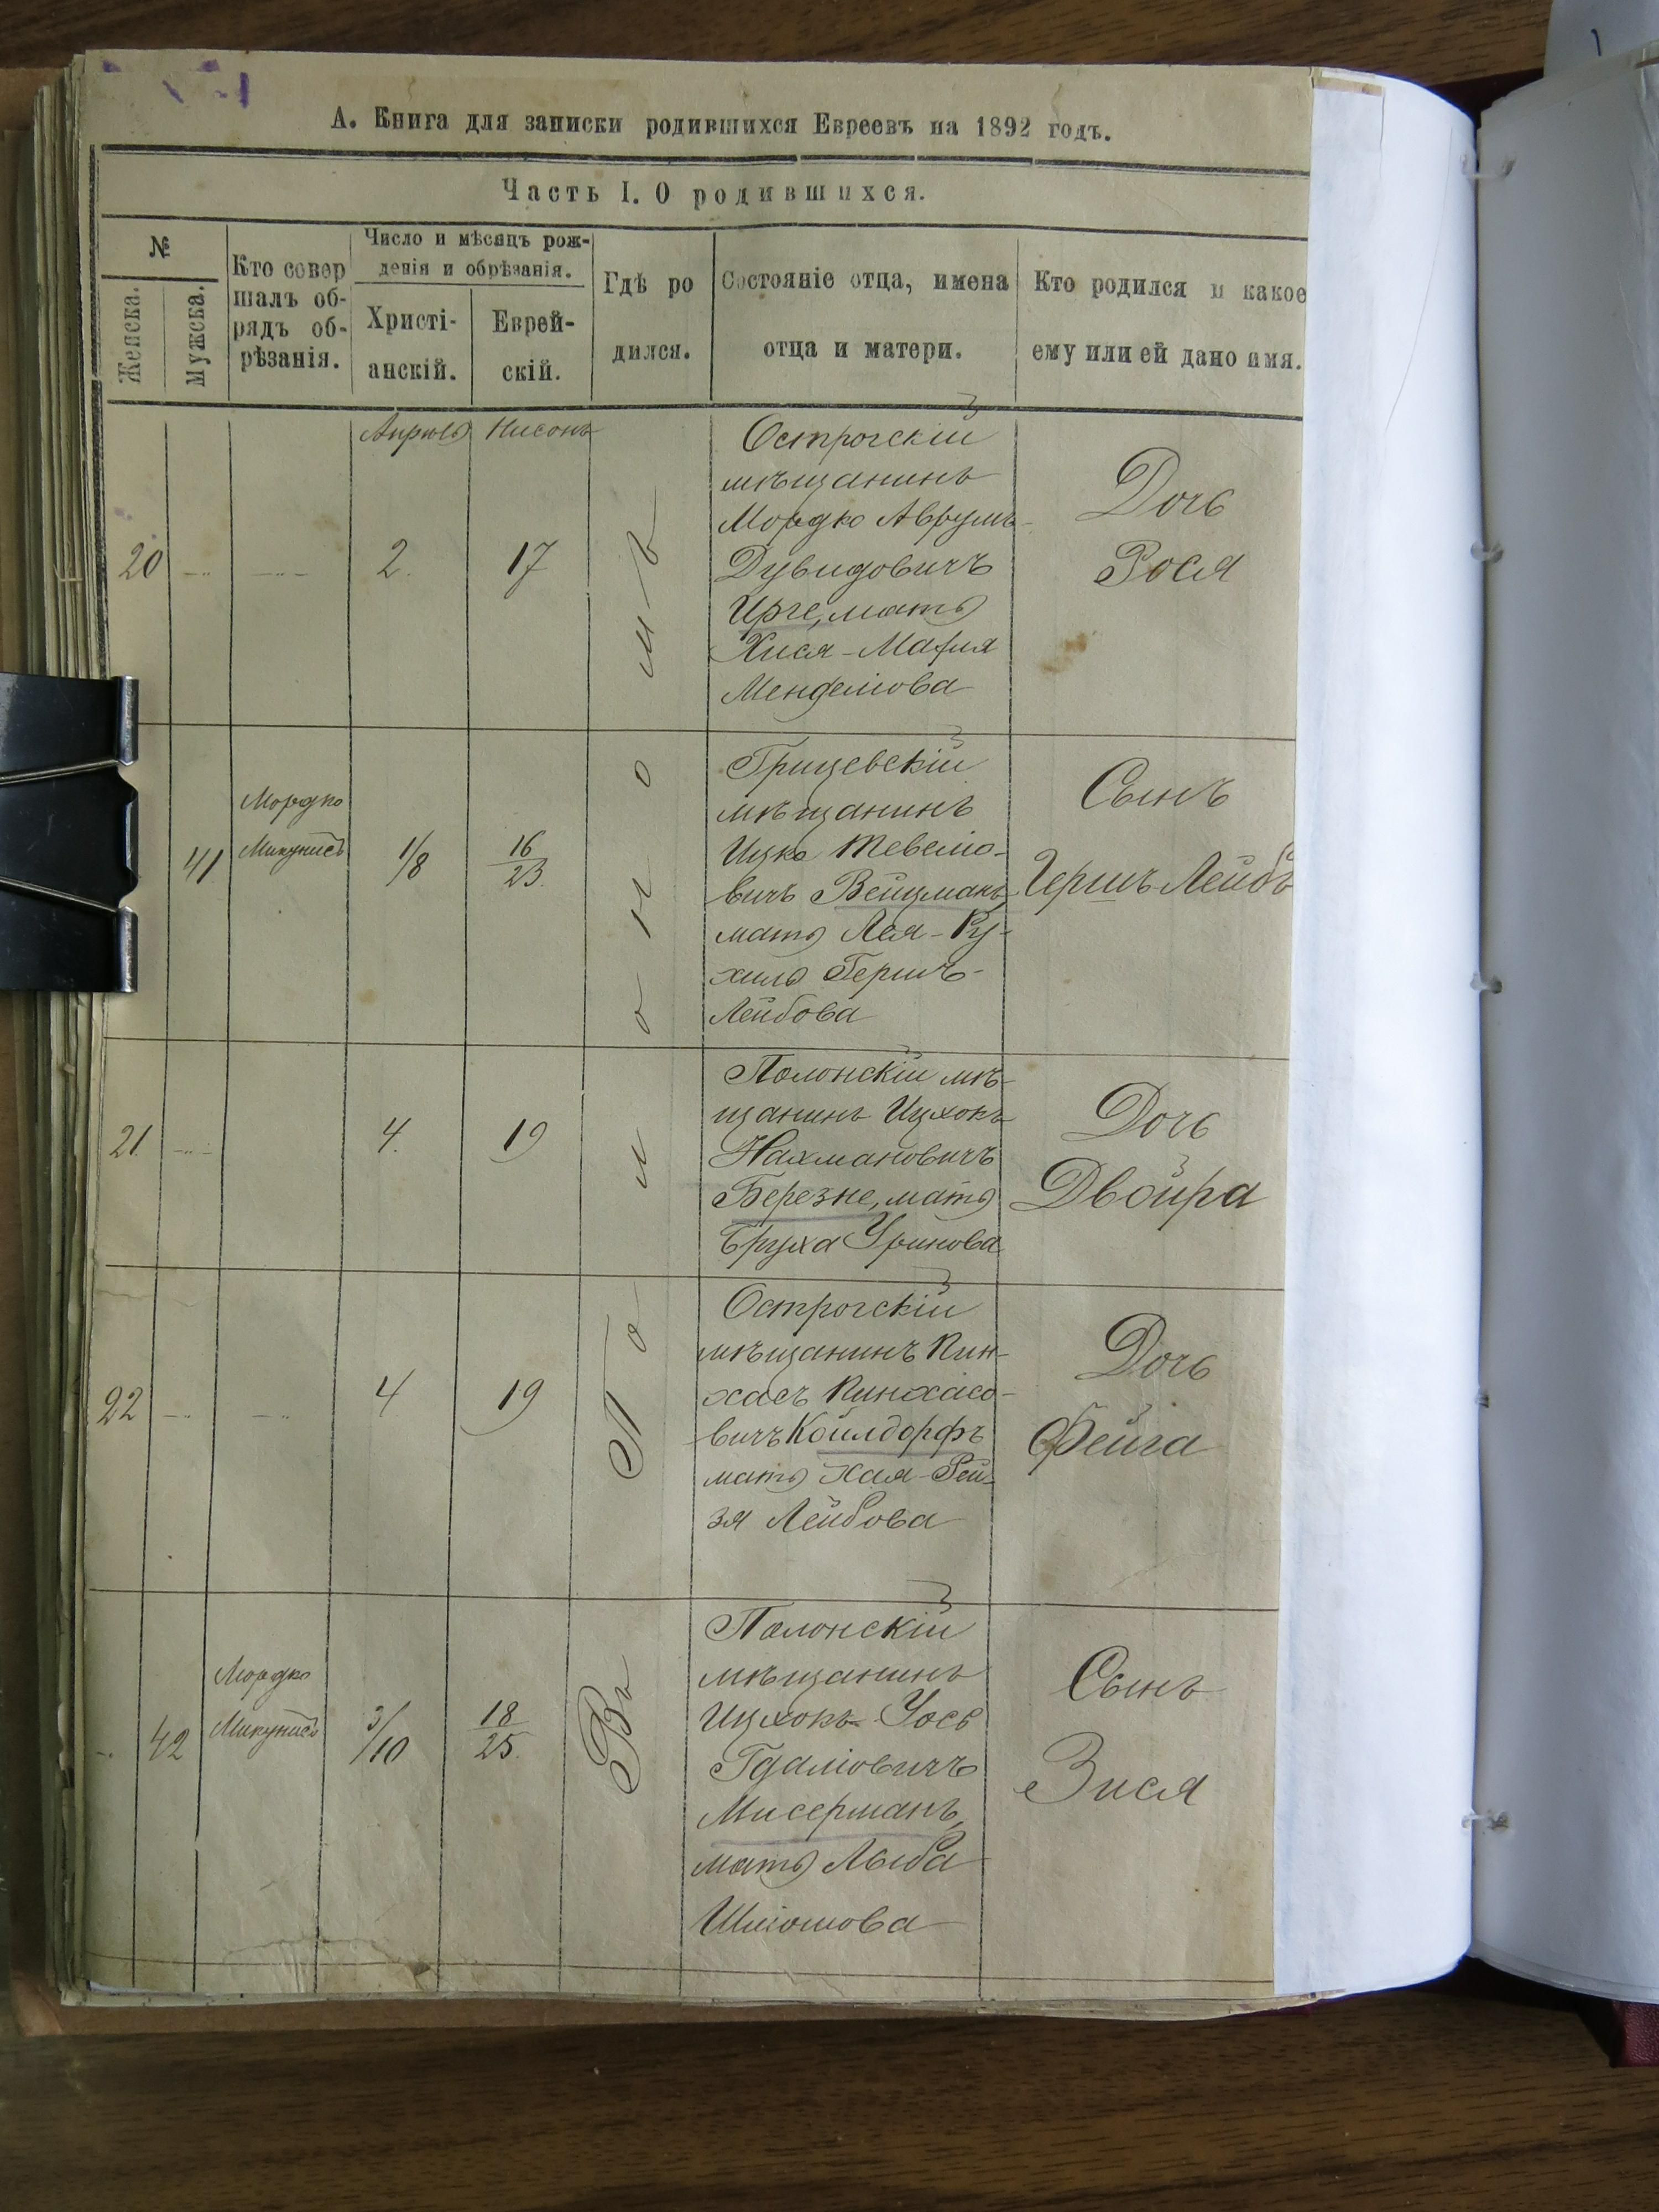 А. Книга для записки родившихся Евреевъ на 1892 годъ.
Часть I. О родившихся.
№
Женска.
Мужска.
Кто совер
шалъ об-
рядъ об-
рѣзанія.
Число и мѣсяцъ рож-
денія и обрѣзанія.
Христі-
анскій.
Еврей-
скій.
Гдѣ ро
дился.
Состояніе отца, имена
отца и матери.
Кто родился и какое
ему или ей дано имя.
Апрѣль
Нисонъ
Въ Полонномъ
20
2.
17
Острогскій
мѣщанинъ
Мордко Аврумъ-
Дувидовичъ
мать
Хися-Малия
Менделіова
Дочь
Рося
41
Мордко
1/8
16
23.
Грицевскій
мѣщанинъ
Ицко Тевеліо-
вичъ Вейцманъ,
мать Лея-Ру-
хиль Гершъ-
Лейбова
Сынъ
Гершъ-Лейбъ
21.
4.
19
Полонскій мѣ-
щанинъ Ицхокъ
Нахмановичъ
Березне, мать
Бруха Уринова
Дочь
Двойра
22
4
19
Острогскій
мѣщанинъ Пин-
хасъ Пинхасо-
вичъ Койлдорфъ
мать Хая-Рей-
зя Лейбова
Дочь
Фейга
42
Мордко
3/10
18
25.
Полонскій
мѣщанинъ
Ицхокъ-Уось
Гдаліовичъ
Мисерманъ,
мать Лыба
Шліомова
Сынъ
Зися